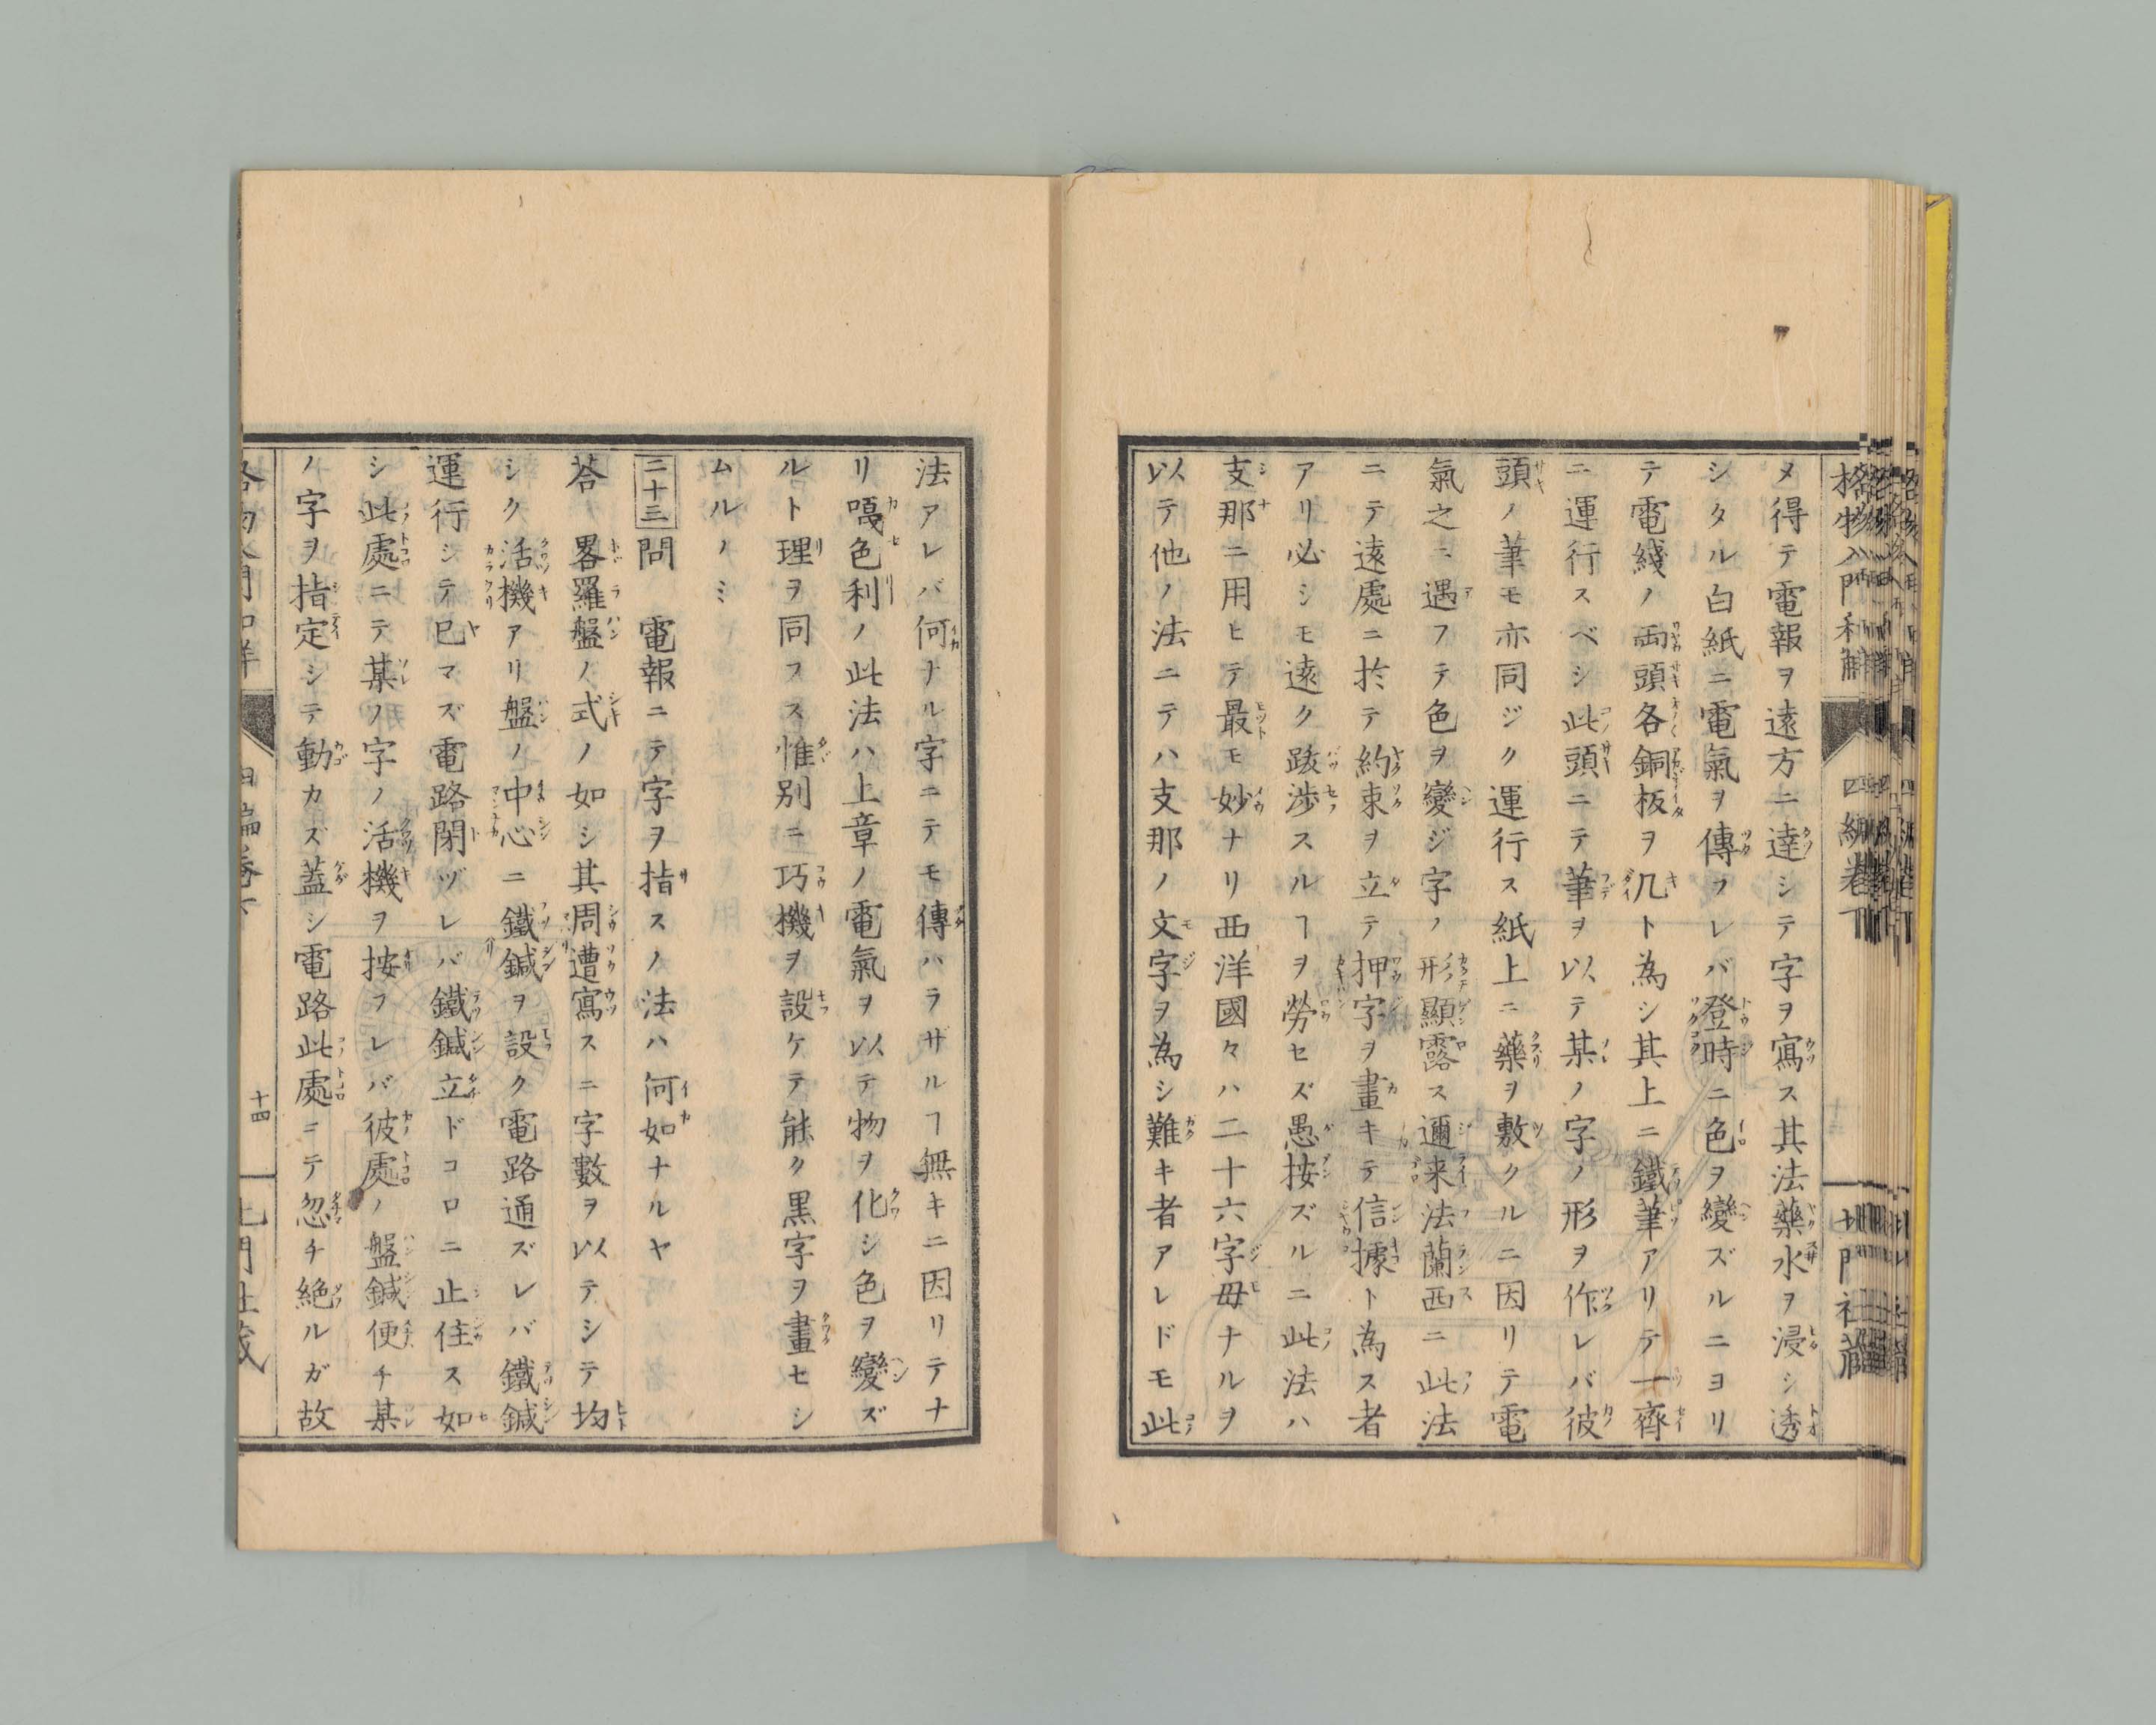 格物入門和解 四編卷下 北門社藏
メ得テ電報ヲ遠方ニ達シテ字ヲ寫ス其法藥水ヲ浸シ透
シタル白紙ニ電氣ヲ傳フレバ登時ニ色ヲ變ズルニヨリ
テ電綫ノ両頭各銅板ヲ几ト為シ其上ニ鐵筆アリテ一齊
ニ運行スベシ此頭ニテ筆ヲ以テ某ノ字ノ形ヲ作レバ彼
頭ノ筆モ亦同ジク運行ス紙上ニ藥ヲ敷クルニ因リテ電
氣之ニ遇フテ色ヲ變ジ字ノ形顯露ス邇来法蘭西ニ此法
ニテ遠處ニ於テ約束ヲ立テ押字ヲ畫キテ信據ト為ス者
アリ必シモ遠ク跋渉スルヿヲ勞セズ愚按ズルニ此法ハ
支那ニ用ヒテ最モ妙ナリ西洋國々ハ二十六字母ナルヲ
以テ他ノ法ニテハ支那ノ文字ヲ為シ難キ者アレドモ此
法アレバ何ナル字ニテモ傳ハラザルヿ無キニ因リテナ
リ嘎色利ノ此法ハ上章ノ電氣ヲ以テ物ヲ化シ色ヲ變ズ
ルト理ヲ同フス惟別ニ巧機ヲ設ケテ能ク黒字ヲ畫セシ
ムルノミ
二十三問 電報ニテ字ヲ指スノ法ハ何如ナルヤ
荅 畧羅盤ノ式ノ如シ其周遭寫スニ字數ヲ以テシテ均
シク活機アリ盤ノ中心ニ鐵鍼ヲ設ク電路通ズレバ鐵鍼
運行シテ已マズ電路閉ヅレバ鐵鍼立ドコロニ止住ス如
シ此處ニテ某ノ字ノ活機ヲ按フレバ彼處ノ盤鍼便チ某
ノ字ヲ指定シテ動カズ蓋シ電路此處ニテ忽チ絶ルガ故
十四